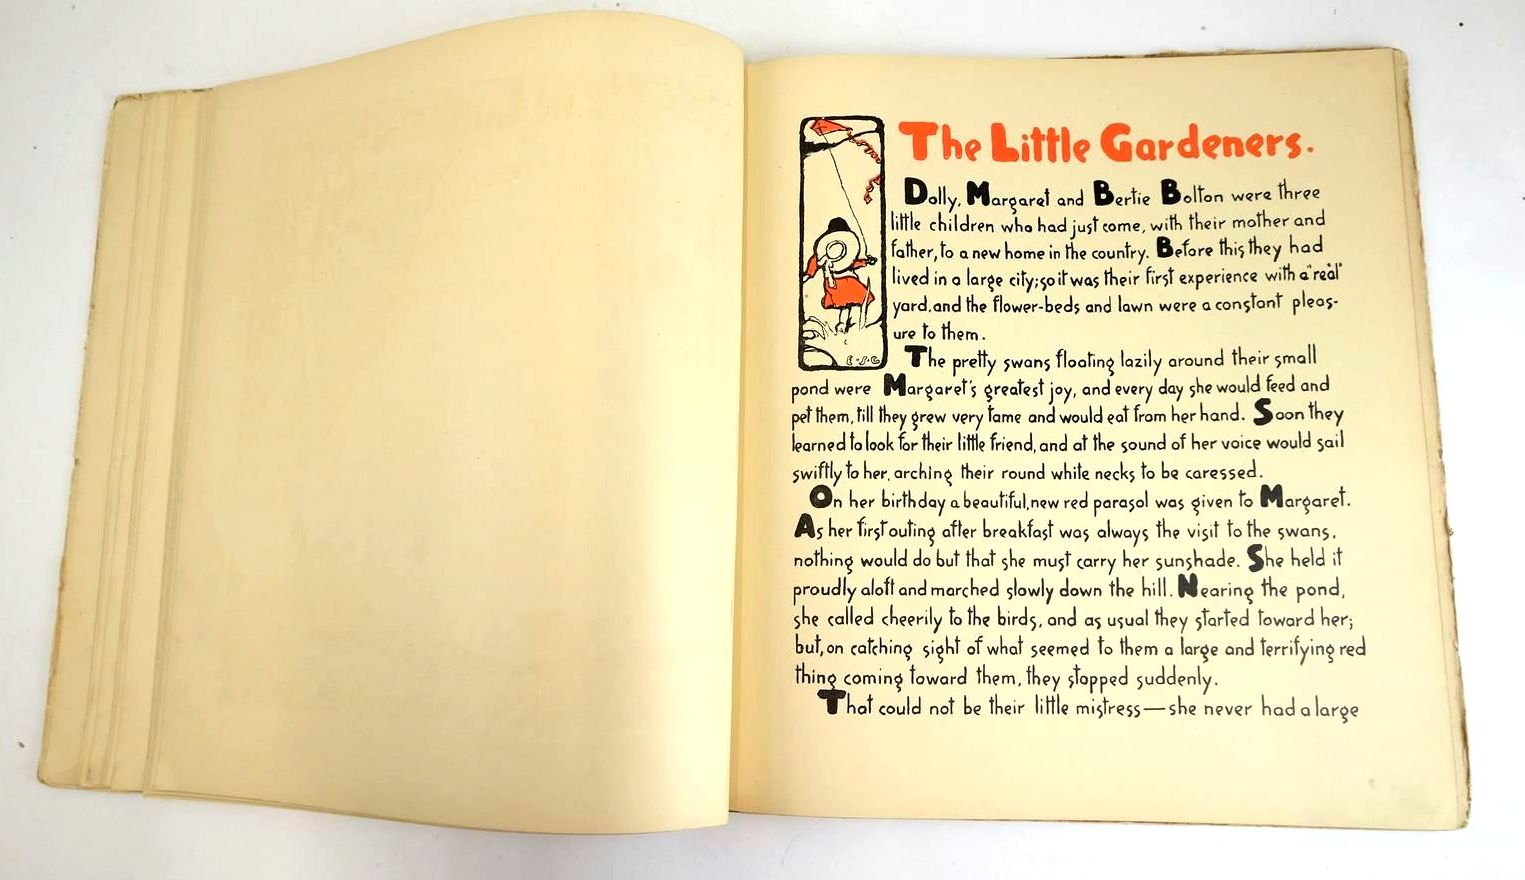 The Little Gardeners.
Dolly, Margaret and Bertie Bolton were three
little children who had just come, with their mother and
father, to a new home in the country. Before this, they had
lived in a large city; so it was their first experience with a "real"
yard, and the flower-beds and lawn were a constant pleas-
ure to them.
The pretty swans floating lazily around their small
pond were Margaret's greatest joy, and every day she would feed and
pet them, till they grew very tame and would eat from her hand. Soon they
learned to look for their little friend, and at the sound of her voice would sail
swiftly to her, arching their round white necks to be caressed.
On her birthday a beautiful, new red parasol was given to Margaret.
As her first outing after breakfast was always the visit to the swans,
nothing would do but that she must carry her sunshade. She held it
proudly aloft and marched slowly down the hill. Nearing the pond,
she called cheerily to the birds, and as usual they started toward her;
but, on catching sight of what seemed to them a large and terrifying red
thing coming toward them, they stopped suddenly.
That could not be their little mistress—she never had a large
E·S·G